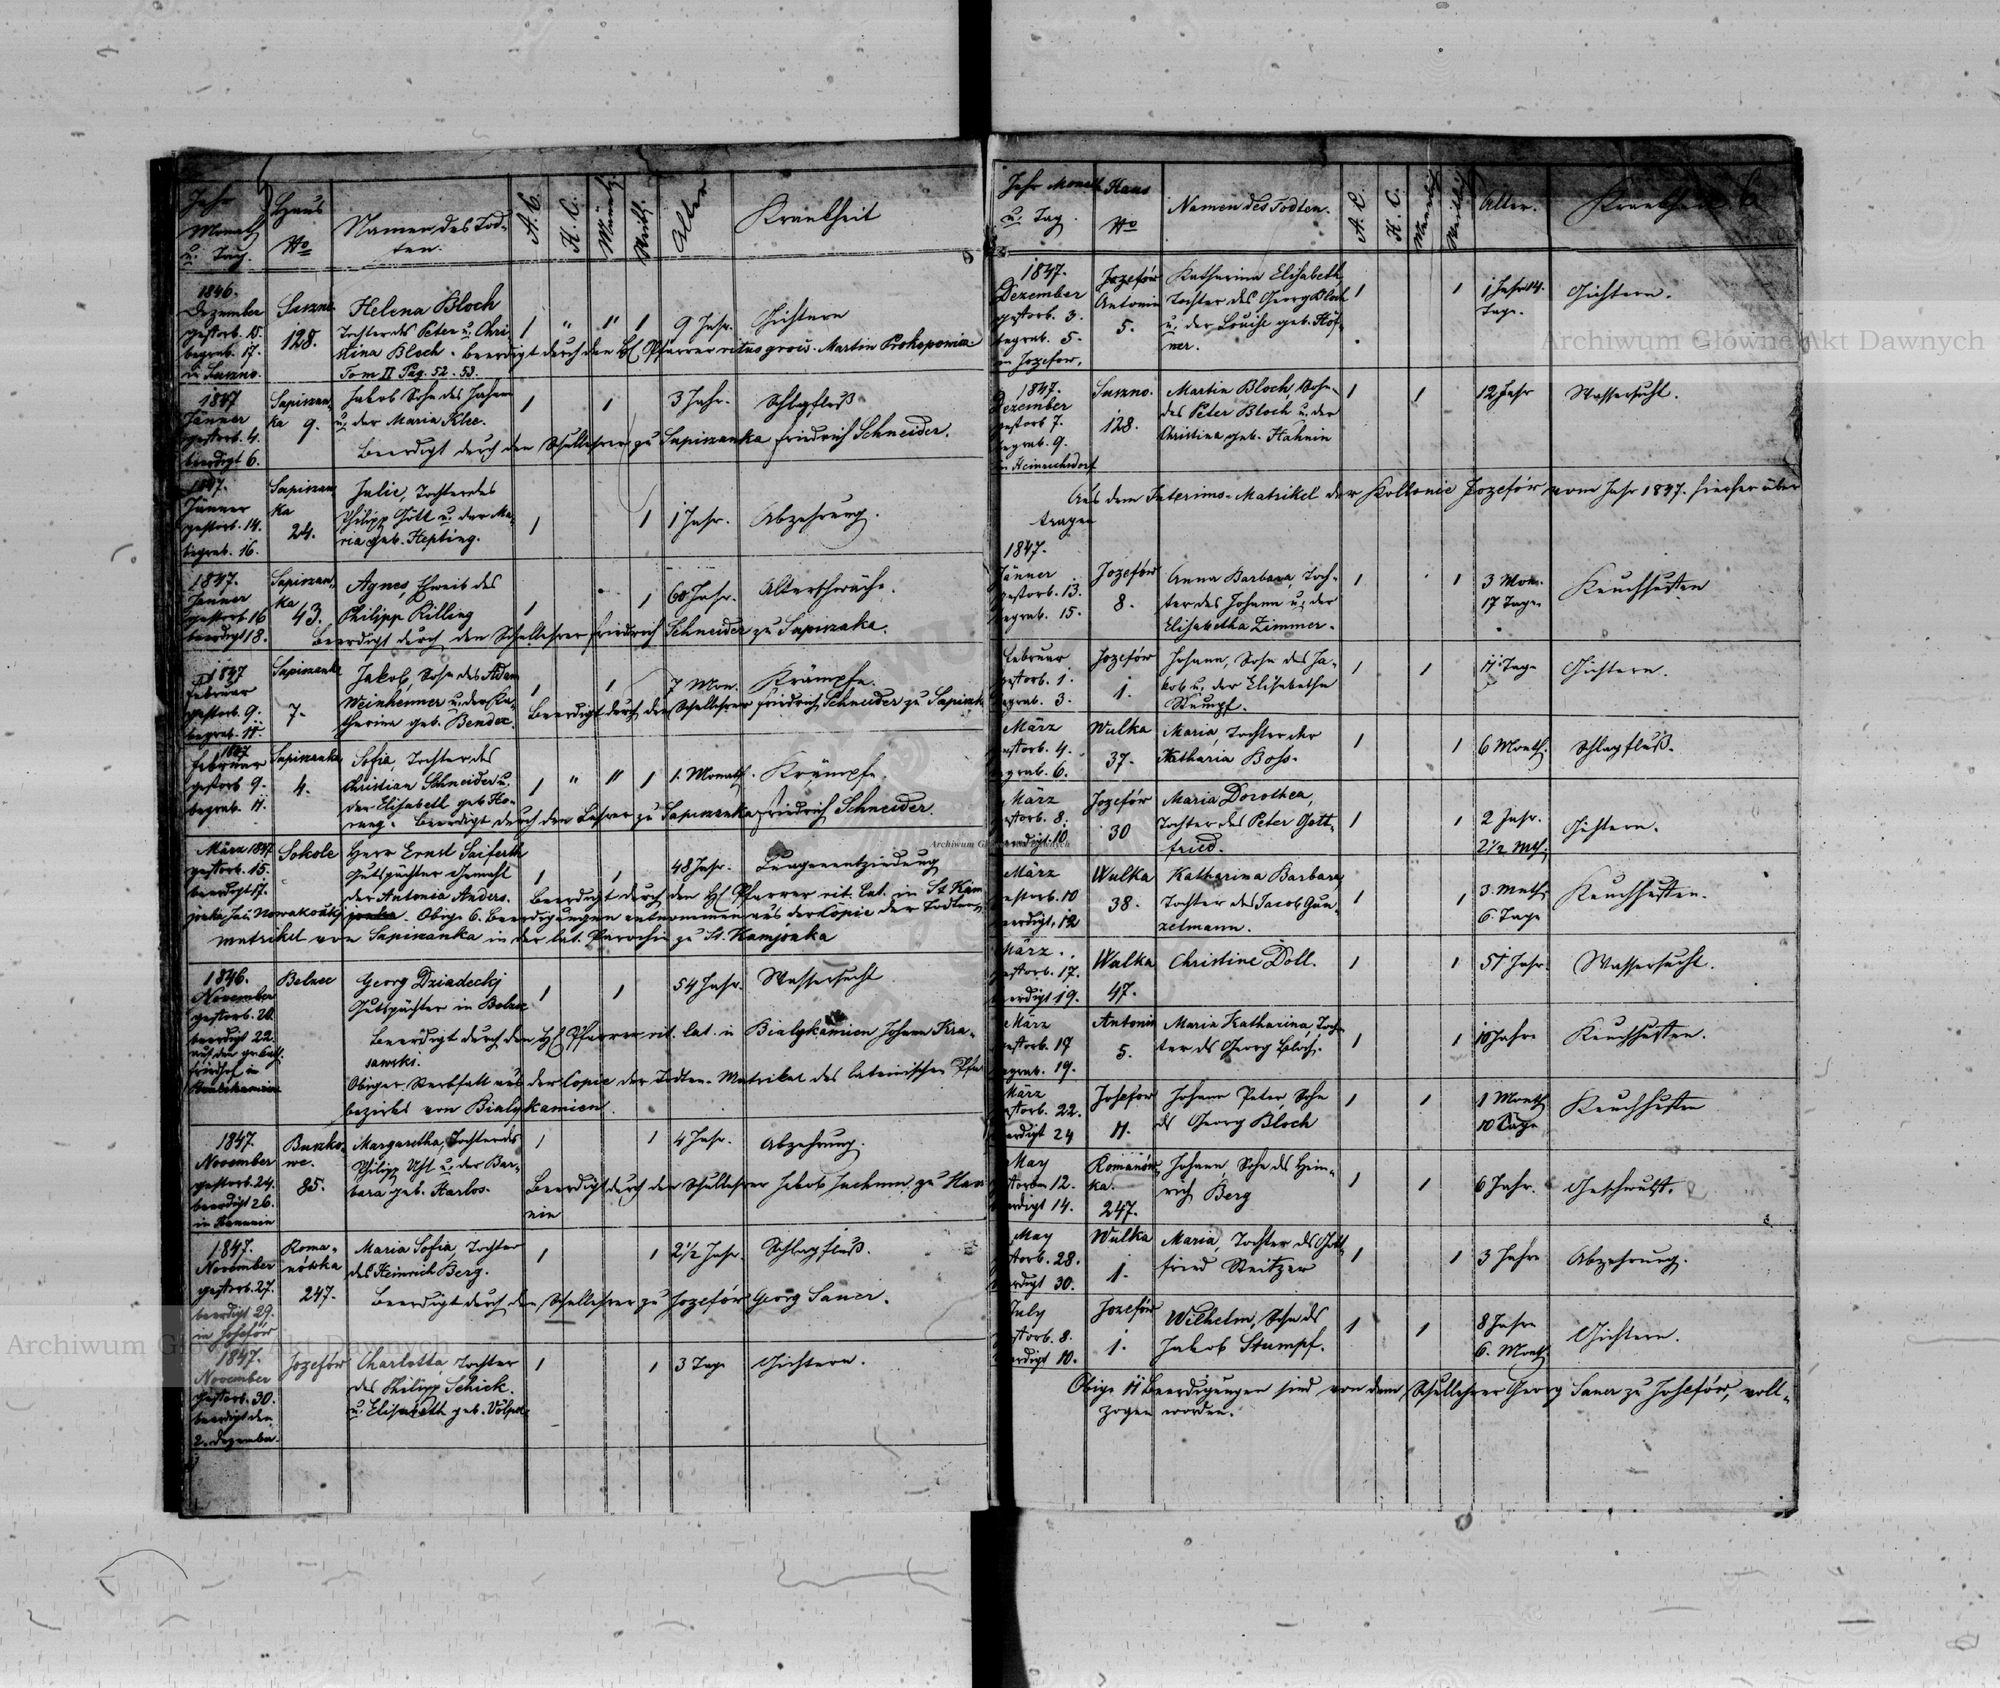 Jahr Monath u. Tag.
Haus No
Namen des Todten.
A. C.
H. C.
Männlich
Weibl.
Alter
Krankheit
1846. Dezember gestorb. 15. begrab. 17. in Suszno.
Suszno 128.
Helena Bloch
Tochter des Peter u. Christina Bloch. Beerdigt durch den H. Pfarrer ritus graeci Martin
Tom II Pag. 52. 53.
1 " " 1
9 Jahr.
Gichtern
1847 Jänner gestorb. 4. beerdigt 6.
Sapiezanka 9.
Jakob Sohn des
u. der Maria Klee.
1 1
3 Jahr.
Schlagfluß
Beerdigt durch den Schullehrer zu Sapiezanka Friedrich Schneider.
1847. Jänner gestorb. 14. begrab. 16.
Sapiezanka 24.
Julie, Tochter des
Philipp Gött u. der Maria geb. Hepting.
1 1
1 Jahr.
Abzehrung.
1847. Jänner gestorb. 16 beerdigt 18.
Sapiezanka 43.
Agnes, Eheweib des
Philipp Killing
1 1
60 Jahr.
Altersschwäche.
Beerdigt durch den Schullehrer Friedrich Schneider zu Sapiezanka.
1847 Februar gestorb. 9. begrab. 11.
Sapiezanka 7.
Jakob, Sohn des Adam
Weinheimer u. der Katharina geb. Bender.
1 1
7 Mon.
Krämpfe.
Beerdigt durch den Schullehrer Friedrich Schneider zu Sapiezank
1847 Februar gestorb. 9. begrab. 11.
Sapiezanka 4.
Sofia, Tochter des
Christian Schneider u.
der Elisabeth geb.
1 " " 1
1. Monath.
Krämpfe.
Beerdigt durch den Lehrer zu Sapiezanka Friedrich Schneider.
März 1847 gestorb. 15. beerdigt 17.
Sokole
Herr Ernst Saiferth
Gutspächter Gemahl
der Antonia Anders.
1 1
48 Jahr.
Lungenentzündung
Beerdigt durch den H. Pfarrer rit. lat. in St. Kamjonka Nowakowski. Obige 6. Beerdigungen entnommen aus der Copie der Todten
matrikel von Sapiezanka in der lat. Parochie zu St. Kamjonka
1846. November gestorb. 20. beerdigt 22. auf den Friedhof in
Belzec
Georg Dziadecki
Gutspächter in Belzec
1 1
54 Jahr.
Wassersucht
Beerdigt durch den H. Pfarrer rit. lat. in Bialykamien Johann
Obiger Sterbfall aus der Copie der Todten-Matrikel des lateinischen Pfarr
bezirks von Bialykamien.
1847. November gestorb. 24. beerdigt 26. in
85.
Margaretha, Tochter des
Philipp Uhl u. der Barbara geb. Harlos.
1 1
4 Jahr.
Abzehrung.
Beerdigt durch den Schullehrer Jakob zu Hanunin
1847. November gestorb. 27. beerdigt 29. in Josefów
Romanówka 247.
Maria Sofia, Tochter
des Heinrich Berg.
1 1
2½ Jahr.
Schlagfluß.
Beerdigt durch den Schullehrer zu Jozefów Georg Sauer.
1847. November gestorb. 30. beerdigt den 2. Dezember.
Jozefów
Charlotta, Tochter
des Philipp Schick.
u. Elisabeth geb.
1 1
3 Tage
Gichtern.
Jahr Monath u. Tag.
Haus No
Namen des Todten.
A. C.
H. C.
Männlich
Weiblich
Alter.
Krankheit
6
1847. Dezember gestorb. 3. begrab. 5. in Jozefow.
Jozefów Antonin 5.
Katharina Elisabeth
Tochter des Georg Bloch
u. der Louise geb. Höfner.
1 1
1 Jahr 14. Tage.
Gichtern.
1847. Dezember gestorb 7. begrab. 9. in Heinrichsdorf
Suszno. 128.
Martin Bloch, Sohn
des Peter Bloch u. der
Christina geb. Hahnin
1 1
12 Jahr
Wassersucht.
Aus dem Interims-Matrikel der Kollonie Jozefów vom Jahr 1847. hierher über
tragen
1847. Jänner gestorb. 13. begrab. 15.
Jozefów 8.
Anna Barbara, Tochter des Johann u. der
Elisabetha Zimmer.
1 1
3 Mon. 17 Tage
Keuchhusten
Februar gestorb. 1. begrab. 3.
Jozefów 1.
Johann, Sohn des Jakob u. der Elisabetha
Stumpf.
1 1
11 Tage
Gichtern.
März gestorb. 4. begrab. 6.
Wulka 37.
Maria, Tochter der
Katharia Boss.
1 1
6 Month.
Schlagfluß.
März gestorb. 8. beerdigt 10
Jozefów 30
Maria Dorothea,
Tochter des Peter Gottfried.
1 1
2 Jahr. 2½ Mth.
Gichtern.
März gestorb. 10 beerdigt. 12
Wulka 38.
Katharina Barbara
Tochter des Jacob Gunzelmann.
1 1
3 Mnth. 6. Tage
Keuchhusten.
März gestorb. 17. beerdigt 19.
Wulka 47.
Christine Doll.
1 1
51 Jahr.
Wassersucht.
März gestorb. 17 begrab. 19.
Antonin 5.
Maria Katharina, Tochter ds Georg Bloch.
1 1
10 Jahre
Keuchhusten.
März gestorb. 22. beerdigt 24
Josefow 11.
Johann Peter, Sohn
ds Georg Bloch
1 1
1 Month 10 Tage
Keuchhusten
May gestorben 12. beerdigt 14.
Romanówka. 247.
Johann, Sohn des Heinrich Berg
1 1
6 Jahr.
Geschwulst.
May gestorb. 28. beerdigt 30.
Wulka 1.
Maria, Tochter ds Gottfried
1 1
3 Jahre
Abzehrung.
July gestorb. 8. beerdigt 10.
Jozefów 1.
Wilhelm, Sohn ds
Jakob Stumpf.
1 1
8 Jahre 6. Month
Gichtern.
Obige 11 Beerdigungen sind von dem Schullehrer Georg Sauer zu Josefów, voll-
zogen worden.
Archiwum Główne Akt Dawnych
Archiwum Główne Akt Dawnych
Archiwum Główne Akt Dawnych